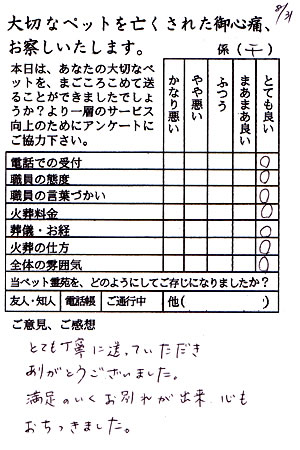 大切なペットを亡くされた御心痛、
お察しいたします。
係(干)
8/31
本日は、あなたの大切なペ
ットを、まごころこめて送
ることができましたでしょ
うか?より一層のサービス
向上のためにアンケートに
ご協力下さい。
かなり悪い
やや悪い
ふつう
まあまあ良い
とても良い
電話での受付 ○
職員の態度 ○
職員の言葉づかい ○
火葬料金 ○
葬儀・お経 ○
火葬の仕方 ○
全体の雰囲気 ○
当ペット霊苑を、どのようにしてご存じになりましたか?
友人・知人 電話帳 ご通行中 他( )
ご意見、ご感想
とても丁寧に送っていただき
ありがとうございました。
満足のいくお別れが出来、心も
おちつきました。